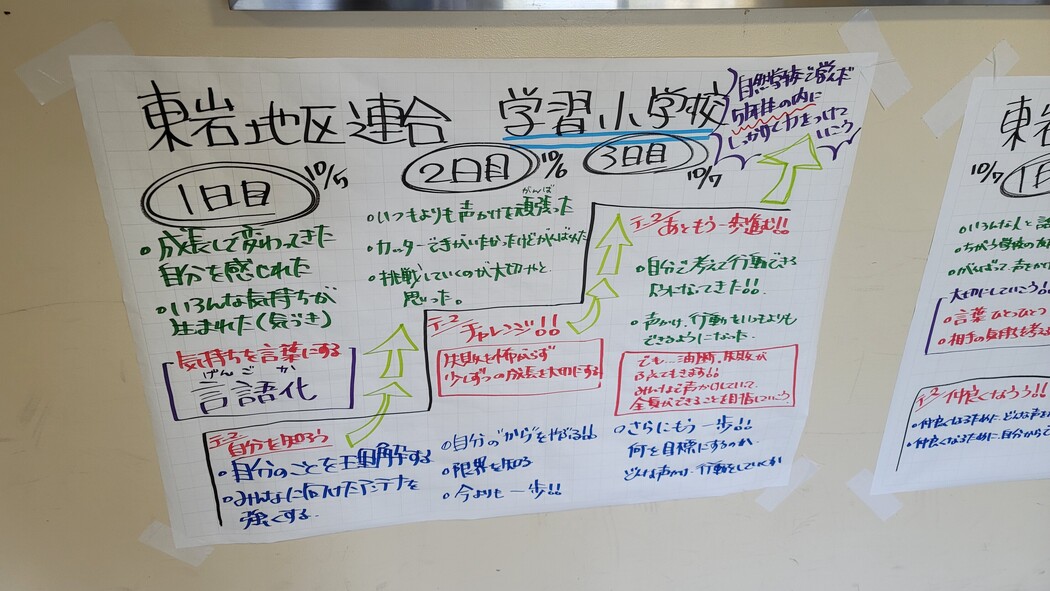 東岩地区連合 学習小学校
自然学校で学んだ
5年生の内に
しっかりと力をつけて
いこう
1日目
10/5
・成長して変わってきた
自分を感じれた
・いろんな気持ちが
生まれた(気づき)
気持ちを言葉にする
げんごか
言語化
テーマ 自分を知ろう
・自分のことを理解する
・みんなに向けたアンテナを
強くする。
2日目
10/6
がんば
・いつもよりも声かけを頑張った
・カッターできがいたかったけどがんばれた
・挑戦していくのが大切やと
思った。
テーマ チャレンジ!!
失敗を怖がらず
少しずつの成長を大切にする
・自分の"から"をやぶる!!
・限界を知る
・今よりも一歩!!
3日目
10/7
テーマ あともう一歩進む!!
・自分で考えて行動できる
ようになってきた!!
・声かけ、行動をいつもよりも
できるようになった
でも…油断、失敗が
みんなで声かけしていて
全員ができることを目指していこう
・さらにもう一歩!!
何を目標にするのか
どんな声かけ、行動をしていくか
東岩
10/7
1日
・いろんな人と話
・ちがう学校の友
・がんばって声をか
大切にしていこう!!
・言葉ひとつひとつ
・相手の気持を考え
テーマ 仲良くなろう!!
・仲良くなるために、どんな声を
・仲良くなるために、自分から